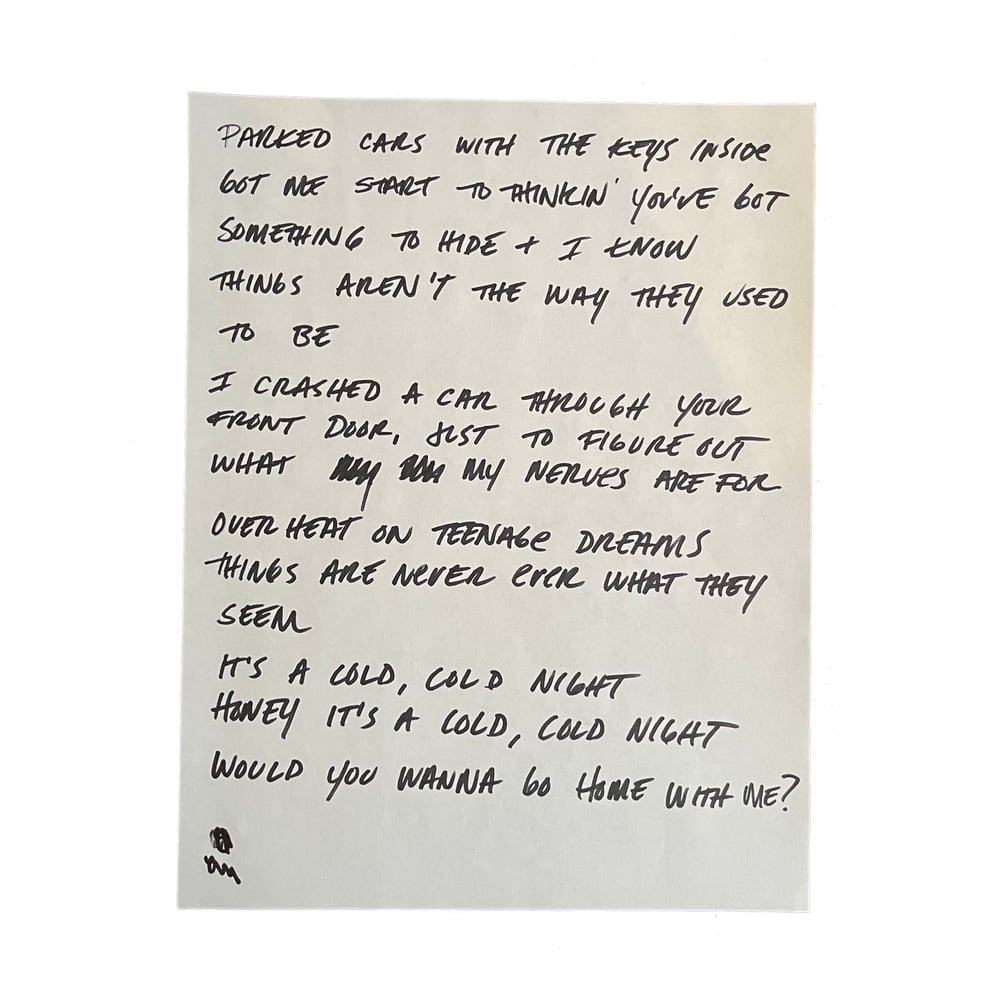 PARKED CARS WITH THE KEYS INSIDE
GOT ME START TO THINKIN' YOU'VE GOT
SOMETHING TO HIDE + I KNOW
THINGS AREN'T THE WAY THEY USED
TO BE
I CRASHED A CAR THROUGH YOUR
FRONT DOOR, JUST TO FIGURE OUT
WHAT MY NERVES ARE FOR
OVERHEAT ON TEENAGE DREAMS
THINGS ARE NEVER EVER WHAT THEY
SEEM
IT'S A COLD, COLD NIGHT
HONEY IT'S A COLD, COLD NIGHT
WOULD YOU WANNA GO HOME WITH ME?